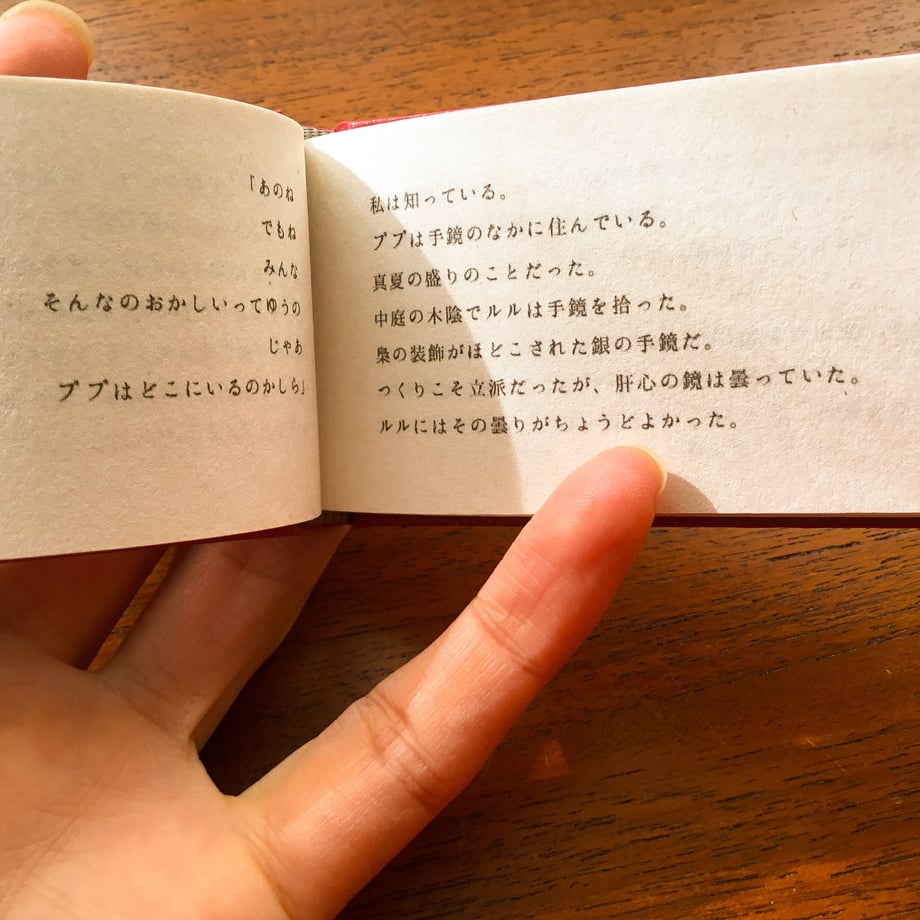 「あのね
でもね
みんな
そんなのおかしいってゆうの
じゃあ
ププはどこにいるのかしら」
私は知っている。
ププは手鏡のなかに住んでいる。
真夏の盛りのことだった。
中庭の木陰でルルは手鏡を拾った。
梟の装飾がほどこされた銀の手鏡だ。
つくりこそ立派だったが、肝心の鏡は曇っていた。
ルルにはその曇りがちょうどよかった。